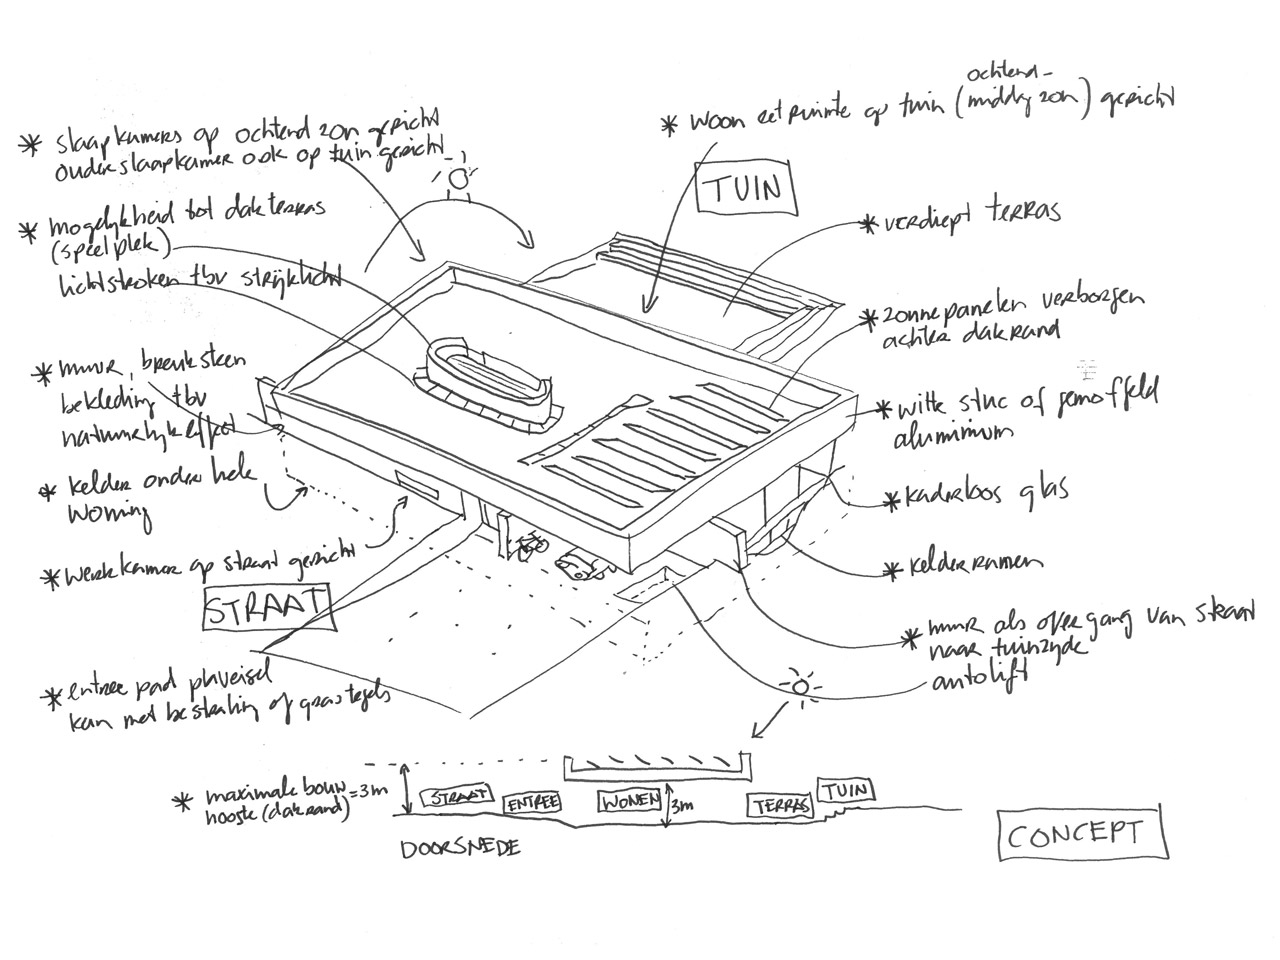 * slaapkamers op ochtend zon gericht
ouderslaapkamer ook op tuin gericht
* mogelijkheid tot dakterras
(speelplek)
lichtstroken tbv strijklicht
* muur, breuksteen
bekleding tbv
natuurlijk effect
* kelder onder hele
woning
* werkkamer op straat gericht
STRAAT
* entree pad plaveisel
kan met bestrating of grastegels
ochtend-
* woon eetruimte op tuin (middag zon) gericht
TUIN
* verdiept terras
* zonnepanelen verborgen
achter dakrand
* witte stuc of gemoffeld
aluminium
* kaderloos glas
* kelderramen
* muur als overgang van straat
naar tuinzijde
autolift
* maximale bouw = 3m
hoogte (dakrand)
STRAAT
ENTREE
WONEN
3m
TERRAS
TUIN
DOORSNEDE
CONCEPT